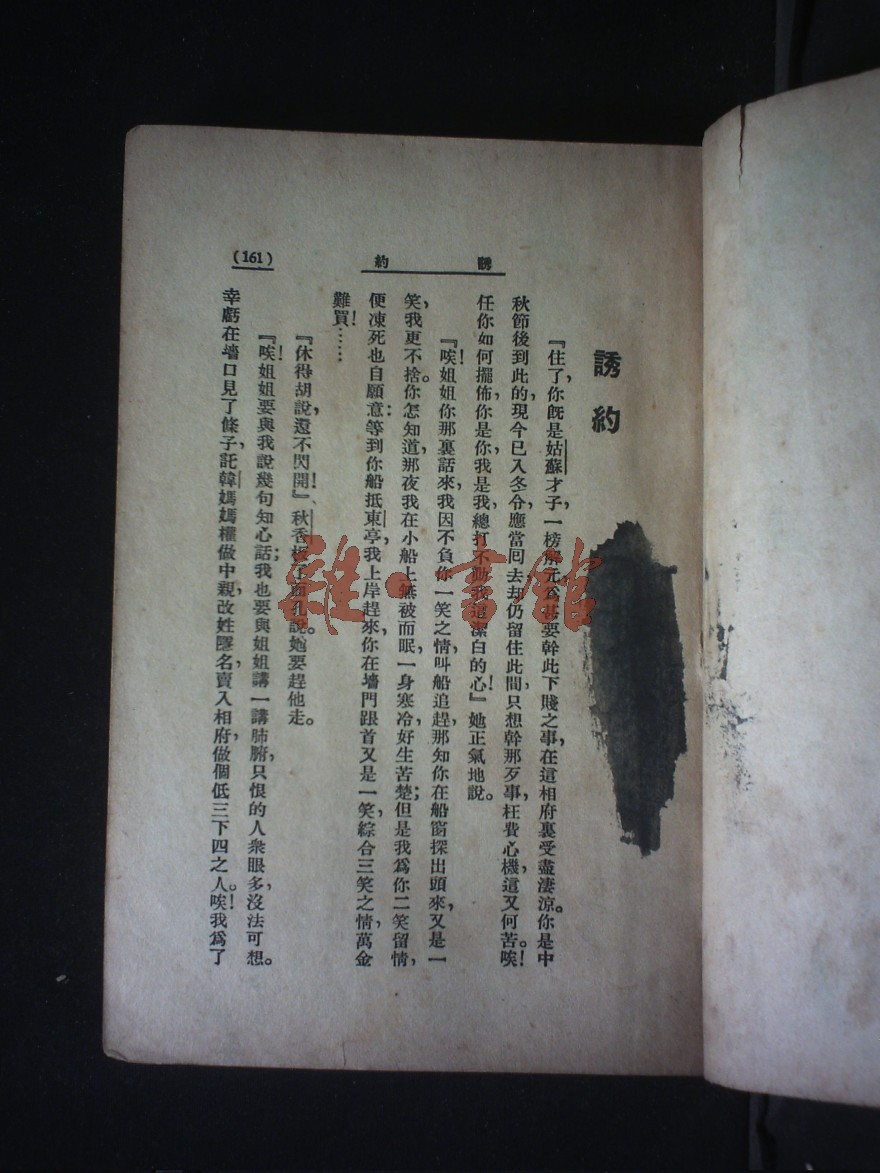 誘約
(161)
誘約
『住了，你旣是姑蘇才子，一榜解元，爲甚要幹此下賤之事，在這相府裏受盡淒涼。你是中
秋節後到此的，現今已入冬令，應當回去，却仍留住此間，只想幹那歹事，枉費心機，這又何苦。唉！
任你如何擺佈，你是你，我是我，總打不動我這潔白的心！』她正氣地說。
『唉！姐姐你那裏話來，我因不負你一笑之情，叫船追趕，那知你在船窗探出頭來，又是一
笑，我更不捨。你怎知道，那夜我在小船上無被而眠，一身寒冷，好生苦楚；但是我爲你二笑留情，
便凍死也自願意：等到你船抵東亭，我上岸趕來，你在墻門跟首又是一笑，綜合三笑之情，萬金
難買！……
『休得胡說，還不閃開！』、秋香板了面孔說。她要趕他走。
『唉！姐姐要與我說幾句知心話；我也要與姐姐講一講肺腑，只恨的人衆眼多，沒法可想。
幸虧在墻口見了條子，託韓媽媽權做中親，改姓隱名，賣入相府，做個低三下四之人。唉！我爲了
雜·書館